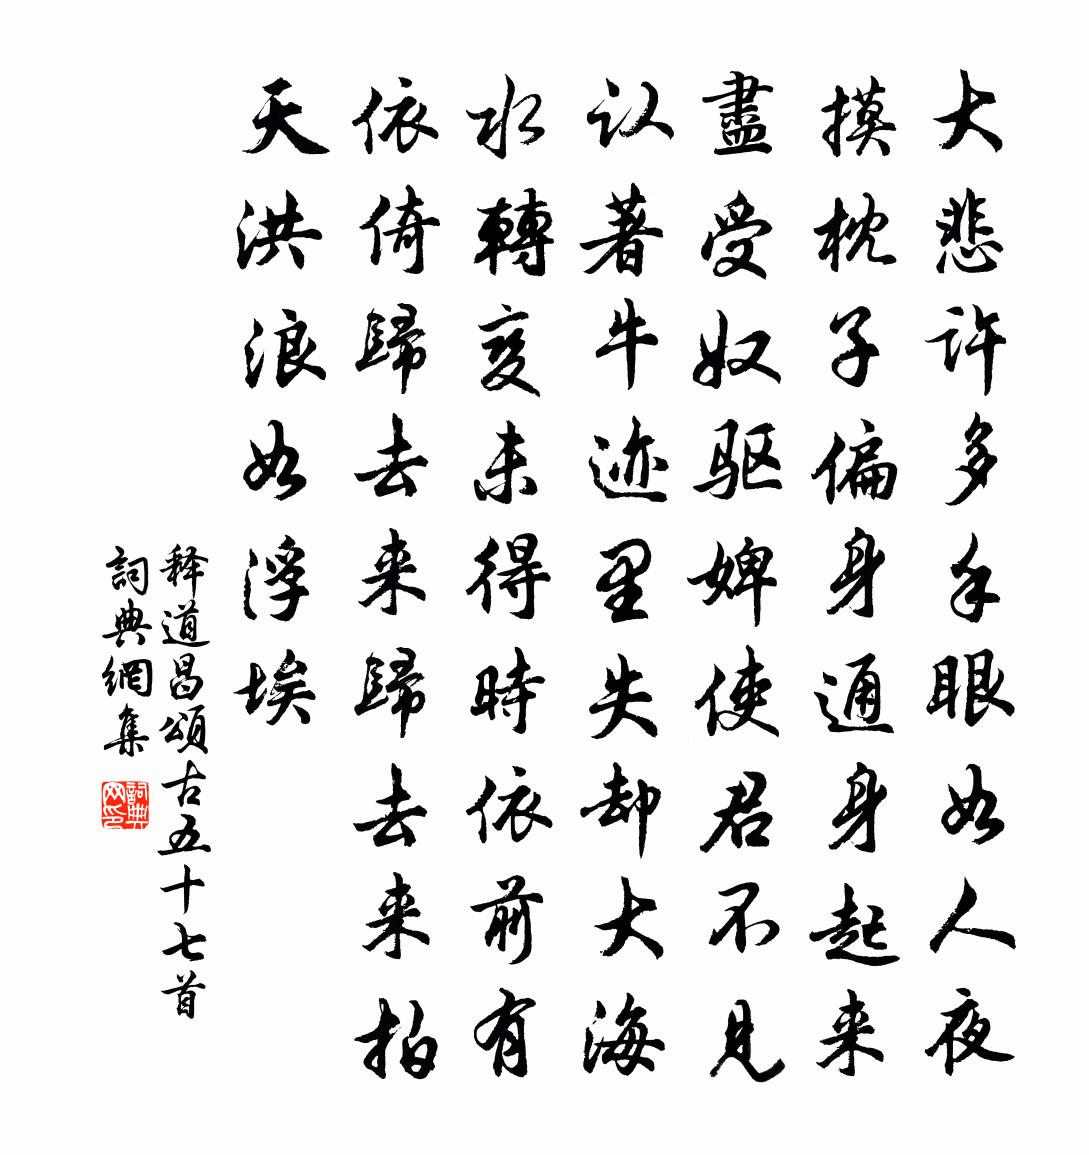 大悲许多手眼如人夜
摸枕子偏身通身起来
盡受奴驱婢使君不见
认著牛迹里失却大海
水轉变未得時依前有
依倚歸去来歸去来拍
天洪浪如浮埃
释道昌頌古五十七首
詞典網集
詞典网印